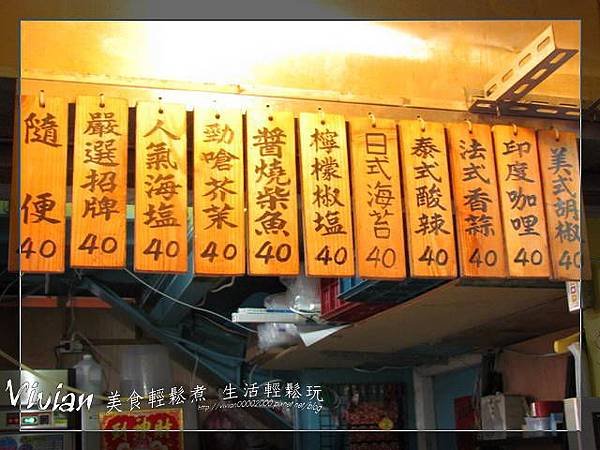 隨便 40
嚴選招牌 40
人氣海塩 40
勁嗆芥茉 40
醬燒柴魚 40
檸檬椒塩 40
日式海苔 40
泰式酸辣 40
法式香蒜 40
印度咖哩 40
美式胡椒 40
Vivian 美食輕鬆煮 生活輕鬆玩
http://vivian00002000.pixnet.net/blog